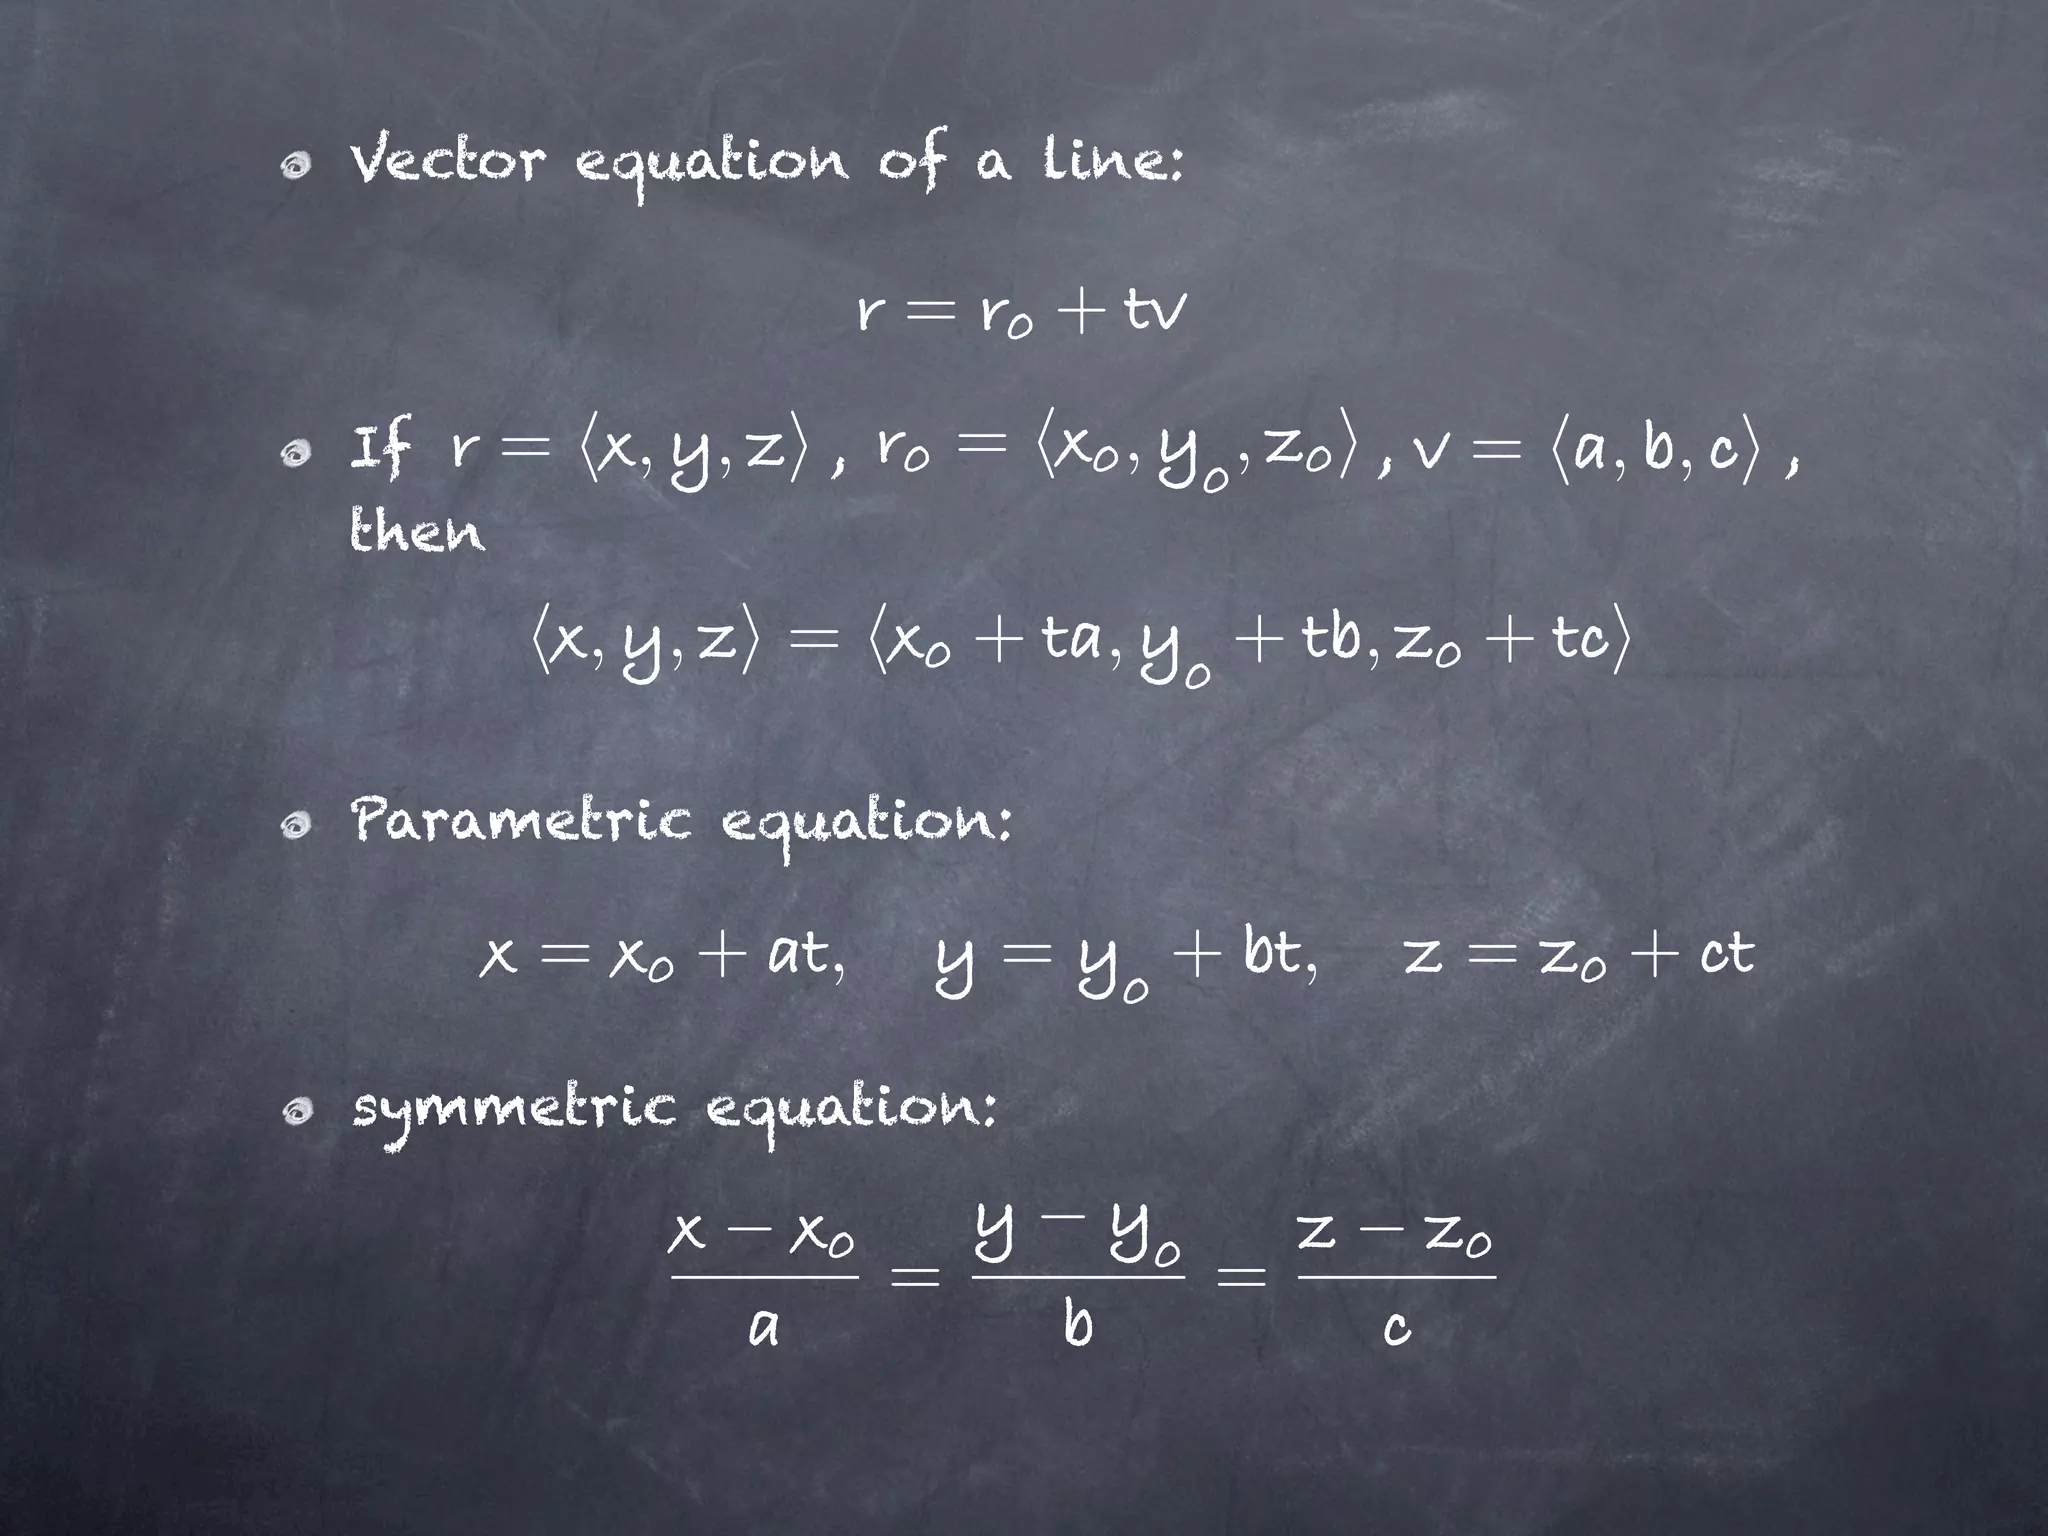 Vector equation of a line:
r = r₀ + tv
If r = ⟨x, y, z⟩ , r₀ = ⟨x₀, y₀, z₀⟩ , v = ⟨a, b, c⟩ ,
then
⟨x, y, z⟩ = ⟨x₀ + ta, y₀ + tb, z₀ + tc⟩
Parametric equation:
x = x₀ + at, y = y₀ + bt, z = z₀ + ct
symmetric equation:
x − x₀ / a = y − y₀ / b = z − z₀ / c